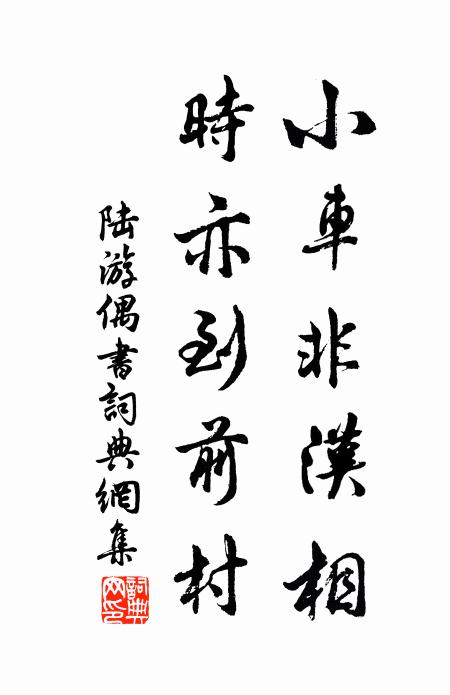 小車非漢相
時亦到前村
陆游偶書詞典網集
詞典網印